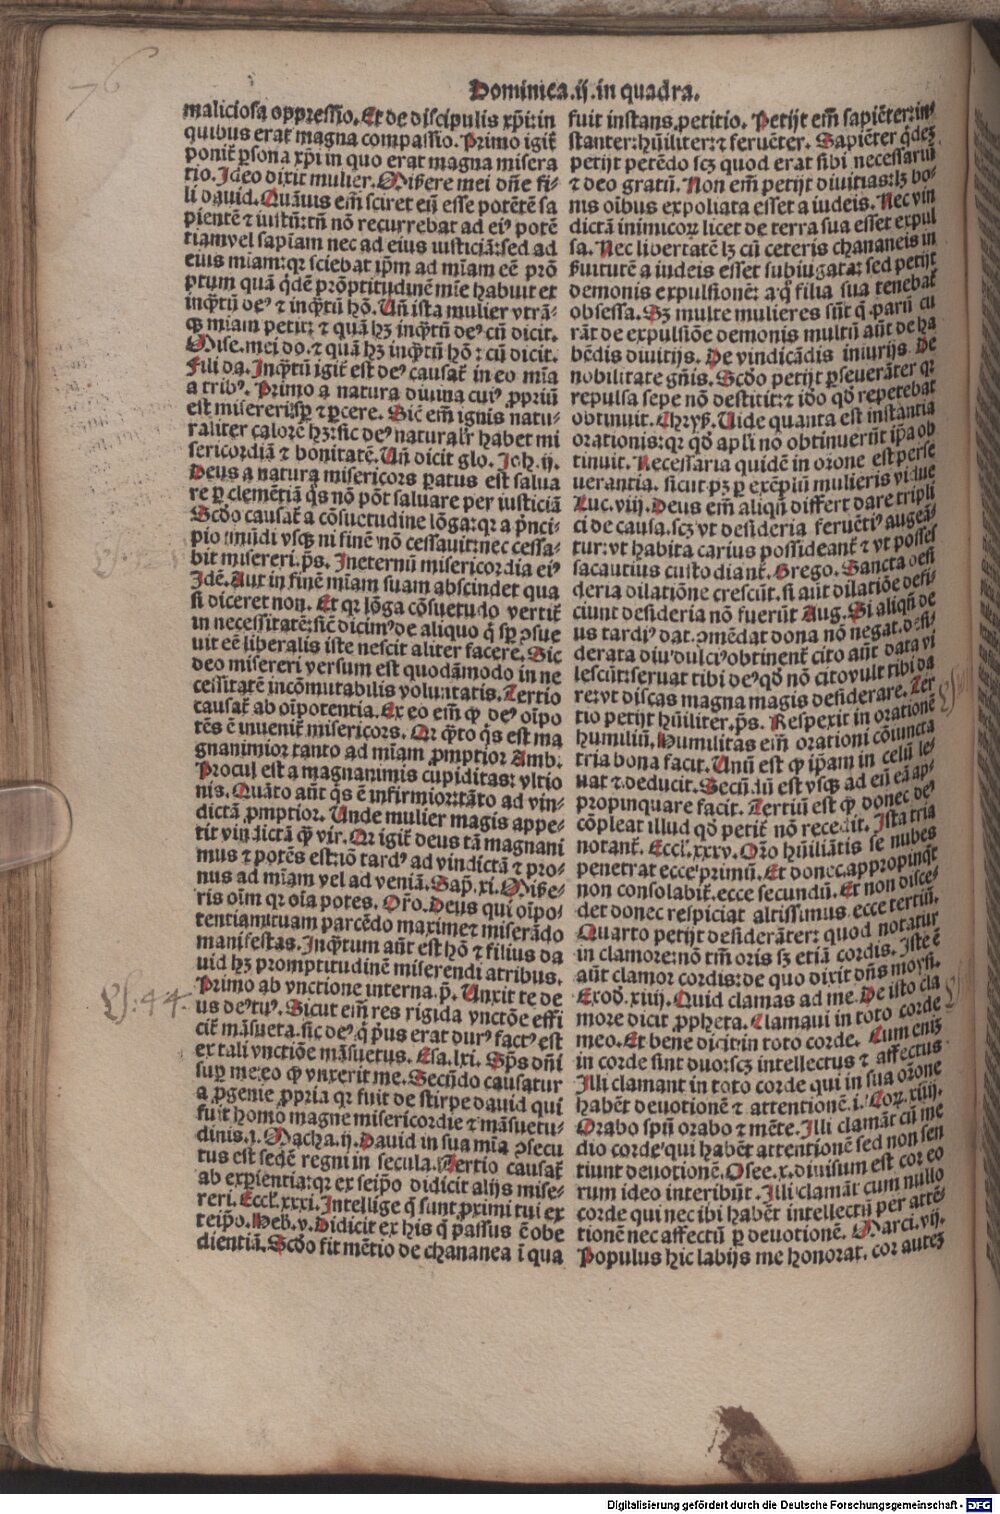 76
Dominica .ij. in quadra.
maliciosa oppressio. Et de discipulis xp̄i: in
quibus erat magna compassio. Primo igit̄
ponit̄ ꝑsona xp̄i in quo erat magna misera
tio. Ideo dixit mulier. Miẞere mei dn̄e fi⸗
li dauid. Quāuis em̄ sciret eū esse potētē sa
pientē ⁊ iustū: tn̄ nō recurrebat ad eiꝰ potē
tiam vel sapīam nec ad eius iusticiā: sed ad
eius miam: qꝛ sciebat ip̄m ad mīam eē prō
ptum quā q̇dē prōptitudinē mīe habuit ex
inq̄tū deꝰ ⁊ inq̄tū hō. Un̄ ista mulier vtrā⸗
qꝫ miam petit: ⁊ quā hꝫ inq̄tū deꝰ cū dicit.
Mise. mei do. ⁊ quā hꝫ inq̄tū hō: cū dicit.
Fili da. Inq̄tū igit̄ est deꝰ causat̄ in eo mīa
a tribꝰ. Primo a natura diuina cuiꝰ ꝓpriū
est misereri: sꝑ ⁊ ꝑcere. Sic̄ em̄ ignis natu⸗
raliter calorē hꝫ: sic deꝰ naturalr̄ habet mi
sericordiā ⁊ bonitatē. Un̄ dicit glo. Joh. ij.
Deus a natura misericors ꝑatus est salua
re ꝑ clemētiā q̇s nō pōt saluare per iusticiā
Scd̄o causat̄ a cōsuetudine lōga: qꝛ a p̄nci⸗
pio mūdi vsqꝫ ni finē nō cessauit: nec cessa⸗
bit misereri. p̄s. Ineternū misericordia eiꝰ
Idē. Aut in finē mīam suam abscindet qua
si diceret non. Et qꝛ lōga cōsuetudo vertit̄
in necessitatē: sic̄ dicimꝰ de aliquo q̇ sꝑ ꝯsue
uit eē liberalis iste nescit aliter facere. Sic
deo misereri versum est quodāmodo in ne
cessitatē incōmutabilis voluntatis. Tertio
causat̄ ab oīpotentia. Ex eo em̄ ꝙ deꝰ oīpo
tēs ē inuenit̄ misericors. Qꝛ q̄to q̇s est ma
gnanimior tanto ad mīam ꝓmptior Amb.
Procul est a magnanimis cupiditas: vltio
nis. Quāto aūt q̇s ē infirmior: tāto ad vin⸗
dictā ꝓmptior. Unde mulier magis appe⸗
tit vindictā ꝙ̄ vir. Qꝛ igit̄ deus tā magnani
mus ⁊ potēs est: iō tardꝰ ad vindictā ⁊ pro⸗
nus ad mīam vel ad veniā. Sap̄. xi. Miẞe⸗
ris oīm qꝛ oīa potes. Or̄o. Deus qui oīpo⸗
tentiam tuam parcēdo maxime ⁊ miserādo
manifestas. Inq̄tum aūt est hō ⁊ filius da
uid hꝫ promptitudinē miserendi a tribus.
Primo ab vnctione interna. p̄. Unxit te de
us deꝰ tuꝰ. Sicut em̄ res rigida vnctōe effi
cit̄ māsueta. sic deꝰ q̇ p̄us erat durꝰ factꝰ est
ex tali vnctiōe māsuetus. Esa. lxi. Sp̄s dn̄i
suꝑ me: eo ꝙ vnxerit me. Secūdo causatur
a ꝓgenie ꝓpria qꝛ fuit de stirpe dauid qui
fuit homo magne misericordie ⁊ māsuetu⸗
dinis. j. Macha. ij. Dauid in sua mīa ꝯsecu
tus est sedē regni in secula. Tertio causat̄
ab exꝑientia: qꝛ ex seip̄o didicit alijs mise⸗
reri. Eccl̄. xxxi. Intellige q̄ sunt ꝓximi tui ex
teip̄o. Heb̄. v. Didicit ex his q̄ passus ē obe
dientiā. Scd̄o fit mētio de chananea ī qua
fuit instans petitio. Petijt em̄ sapiēter: in⸗
stanter: hūiliter: ⁊ feruēter. Sapiēter q̇dēꝫ
petijt petēdo scꝫ quod erat sibi necessariū
⁊ deo gratū. Non em̄ petijt diuitias: lꝫ bo⸗
nis oībus expoliata esset a iudeis. Nec vin
dictā inimicoꝝ licet de terra sua esset expul
sa. Nec libertatē lꝫ cū ceteris chananeis in
ẞuitutē a iudeis esset subiugata: sed petijt
demonis expulsionē: a q̇ filia sua tenebat̄
obsessa. Sꝫ multe mulieres sūt q̄ parū cu
rāt de expulsiōe demonis multū aūt de ha
bēdis diuitijs. De vindicādis iniurijs De
nobilitate gn̄is. Scd̄o petijt ꝑseuerāter qꝛ
repulsa sepe nō destitit: ⁊ iđo qđ repetebat
obtinuit. Chryß. Uide quanta est instantia
orationis: qꝛ qđ apl̄i nō obtinuerūt ip̄a ob
tinuit. Necessaria quidē in or̄one est perse
uerantia. sicut pꝫ ꝑ exēplū mulieris vidue
Luc. viij. Deus em̄ aliqn̄ differt dare tripli
ci de causa. scꝫ vt desideria feruētiꝰ augeā⸗
tur: vt habita carius possideant̄ ⁊ vt posses
sa cautius custodiant̄. Grego. Sancta desi
deria dilatiōne crescūt. si aūt dilatiōe defi⸗
ciunt desideria nō fuerūt Aug. Si aliqn̄ de
us tardiꝰ dat. ꝯmēdat dona nō negat. desi⸗
derata diu dulciꝰ obtinent̄ cito aūt data vi
lescūt: seruat tibi deꝰ qđ nō cito vult tibi da
re: vt discas magna magis desiderare. Ter
tio petijt hūiliter. p̄s. Respexit in orationē
humiliū. Humilitas em̄ orationi cōiuncta
tria bona facit. Unū est ꝙ ip̄am in celū le⸗
uat ⁊ deducit. Secūdū est vsqꝫ ad eū eā ap⸗
propinquare facit. Tertiū est ꝙ donec deꝰ
cōpleat illud qđ petit̄ nō recedit. Ista tria
notant̄. Eccl̄. xxxv. Or̄o hūiliātis se nubes
penetrat ecce primū. Et donec appropinq̄t
non consolabit̄. ecce secundū. Et non disce⸗
det donec respiciat altissimus ecce tertiū.
Quarto petijt desiderāter: quod notatur
in clamore: nō tm̄ oris sꝫ etiā cordis. Iste ē
aūt clamor cordis: de quo dixit dn̄s moysi.
Exođ. xiiij. Quid clamas ad me. De isto cla
more dicit ꝓpheta. Clamaui in toto corde
meo. Et bene dicit: in toto corde. Cum eniꝫ
in corde sint duo: scꝫ intellectus ⁊ affectus
Illi clamant in toto corde qui in sua or̄one
habēt deuotionē ⁊ attentionē. i. Coꝝ. xiiij.
Orabo spū orabo ⁊ mēte. Illi clamāt cū me
dio corde qui habēt attentionē sed non sen
tiunt deuotionē. Osee. x. diuisum est cor eo
rum ideo interibūt. Illi clamāt cum nullo
corde qui nec ibi habēt intellectū per attē⸗
tionē nec affectū ꝑ deuotionē. Marci. vij.
Populus hic labijs me honorat. cor auteꝫ
Ps. 44.
Digitalisierung gefördert durch die Deutsche Forschungsgemeinschaft - DFG